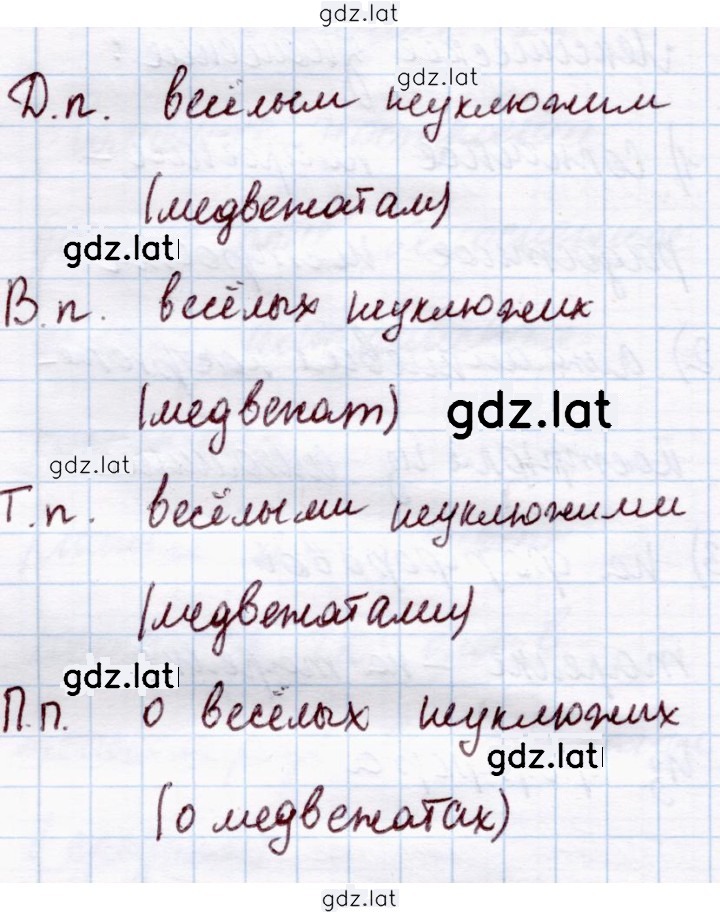 gdz.lat
gdz.lat
Д.п. весёлым неуклюжим
(медвежатам)
gdz.lat
В.п. весёлых неуклюжих
(медвежат)
gdz.lat
gdz.lat
Т.п. весёлыми неуклюжими
(медвежатами)
gdz.lat
П.п. о весёлых неуклюжих
gdz.lat
(о медвежатах)
gdz.lat